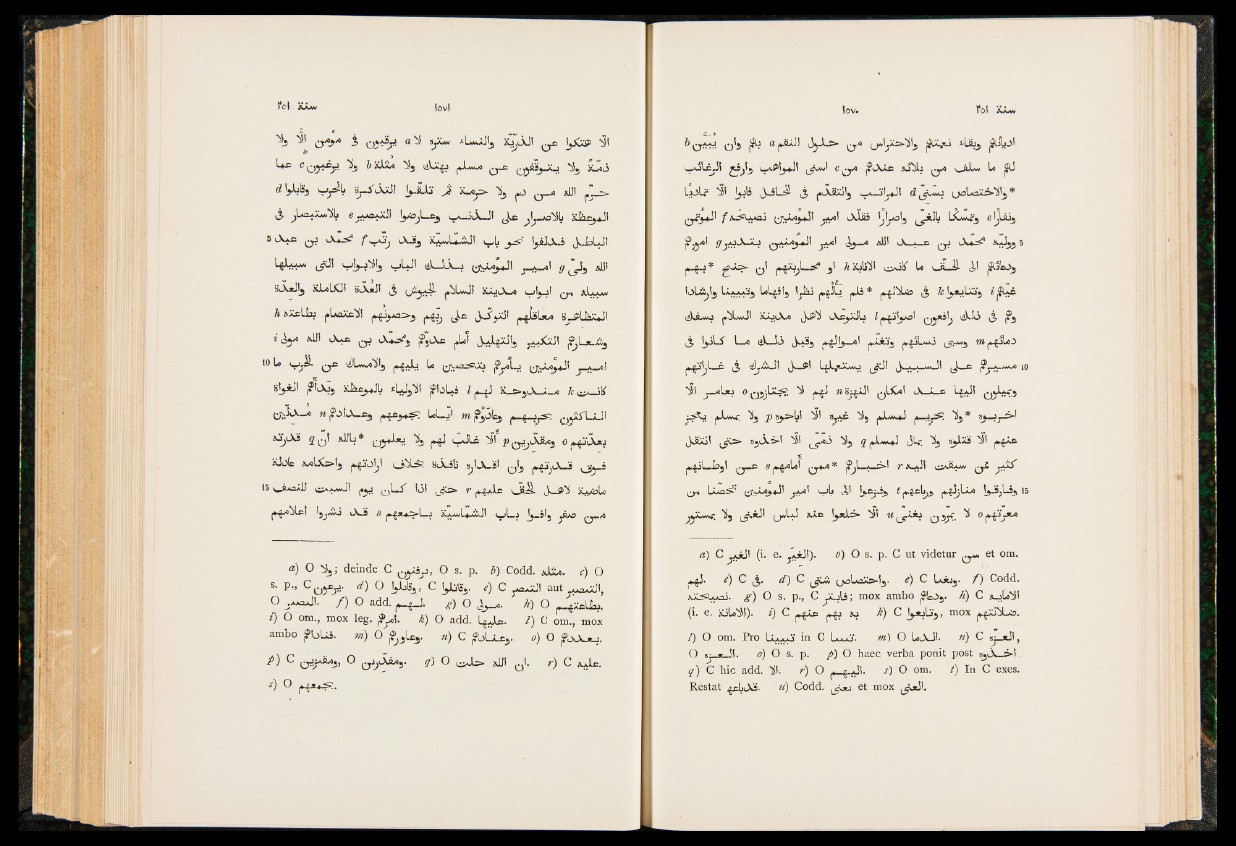 سنة ٢٥١ ١٥٧٠
اديانهم وبقاء نعمتهم والاحتراس من حلول النقم a بهم وان يُبَيِّن b
لهم ما سلف من بلائه عندهم c من اسنى المواهب وارفع الرغائب
*والاختصاص بسَنِىّ d المراتب والتقدّم فى المحافل فابوا الّا تماديًا
ونفارًا e وتمسّكا بالغى واصرارًا فقلّد امير المؤمنين نصيحه f المؤتمن
5 ووليّه محمد بن عبد الله مولى امير المؤمنين بتدبير g امورهم
ودعائهم الى الحقّ ما كانت الانابة h او محاربتهم ان جنح *بهم
غيّهم i وتتابعوا k فى ضلالتهم *فلم يألُهم نظرا وافهاما وتبيينا وارشادا
وهم فى ذلك رافعون اصواتهم l بالتوعّد لاهل مدينة السلام بسفك
دمائهم m وسبى نسائهم وتغنّم اموالهم وقبل ذلك ما كانوا فى
10 مسيرهم على السبيل التى يستعملها اهل الشرك فى غاراتهم
ويميلون اليها عند امكان النهزة n لهم لا يجتازون o بعامر الّا
اخربوه *ولا بحريم لمسلم ولا غيره الّا اباحوه p ولا بمسلم يعجز
عنهم الّا قتلوه ولا بمال لمسلم q ولا ذمّى الّا اخذوه حتى انتقل
كثير ممن سبقت اليه r اخبارهم *ممن امامهم s عن اوطانهم
15 وفارقوا منازلهم ورباعهم t وفزعوا الى باب امير المؤمنين تحصّنا من
معرّتهم o لا يمرّون بغنىّ u الّا خلعوا عنه لباس الغنى ولا بمستور
a) C الغير (i. e. الغِيَر). b) O s. p. C ut videtur et om.
لهم. c) C فى. d) C واختصاص شنى. e) C وبغيا. f) Codd.
g) O s. p., C; mox ambo ودعاهم. h) C
(i. e. الامانة). i) C به بهم عنهم k) C وتبايعوا, mox ضلالتهم.
l) O om. Pro تبيينا in C. m) O الدما. n) C العزة,
O. o) O s. p. p) O haec verba ponit post اخذوه.
q) C hic add. الا. r) O اليهم. s) O om. t) In C exes.
Restat. u) Codd. بغى et mox الغى.
١٥٧١ سنة ٢٥١
الّا هتكوا عن الذرّيّة والنساء ستره لا a يرقبون فى مؤمن إلًّا ولا
ذمّة ولا يتوقّفون عن مسلم بهتك ولا مُثلة b ولا يرغبون c عما
حرّم الله من دم ولا حرمة ثم تلقّوا التذكرة بالحرب وقابلوا d
الموعظة بالاصرار على الذنب وعارضوا التبصير e بالاستبصار فى
5 الباطل فدلفوا نحو باب الشمّاسيّة وقد رتّب f محمد بن عبد
الله مولى g امير المؤمنين بذلك الباب والابواب التى سبيلها
سبيله من ابواب مدينة السلام الجيوش فى العُدّة الكاملة والعدّة
المتظاهرة معاقلهم التوكّل على ربّهم وحصونهم الاعتصام بطاعته h
وشعارهم التكبير والتهليل أمام عدوّهم ومحمد بن عبد الله مولى i
10 امير المؤمنين يأمرهم بتحصين ما يليهم والامساك عن الحرب ما
كانت k مندوحة لهم l فبادأهم الاولياء بالموعظة وبدأهم الغواة
الناكثون بحربهم وعادّوهم m ايّاما بجمعهم وعدادهم n مدلّين
بعدّتهم o ومقدّرين p ألّا غالب لهم ولا يعلمون *بالله انّ q قدرته
فوق قدرتهم وان اقداره نافذة بخلاف ارادتهم واحكامه عادلة
15 ماضية لاهل الحقّ عليهم r حتى اذا كان يوم السبت للنصف
من صفر وافوا باب الشمّاسيّة باجمعهم s قد نشروا اعلامهم
a) O ولا; deinde C, O s. p. b) Codd. مثله. c) O
s. p., C. d) O, C وقاتلوا. e) C aut,
O. f) O add. لهم. g) O مولى. h) O بطاعتهم.
i) O om., mox leg. امرهم. k) O add. عليها. l) C om., mox
ambo فبداهم. m) O وعاورهم. n) C وعنادهم. o) O بعددهم.
p) C, O. q) O ان الله جلت. r) C عليه.
s) O بجمعهم.